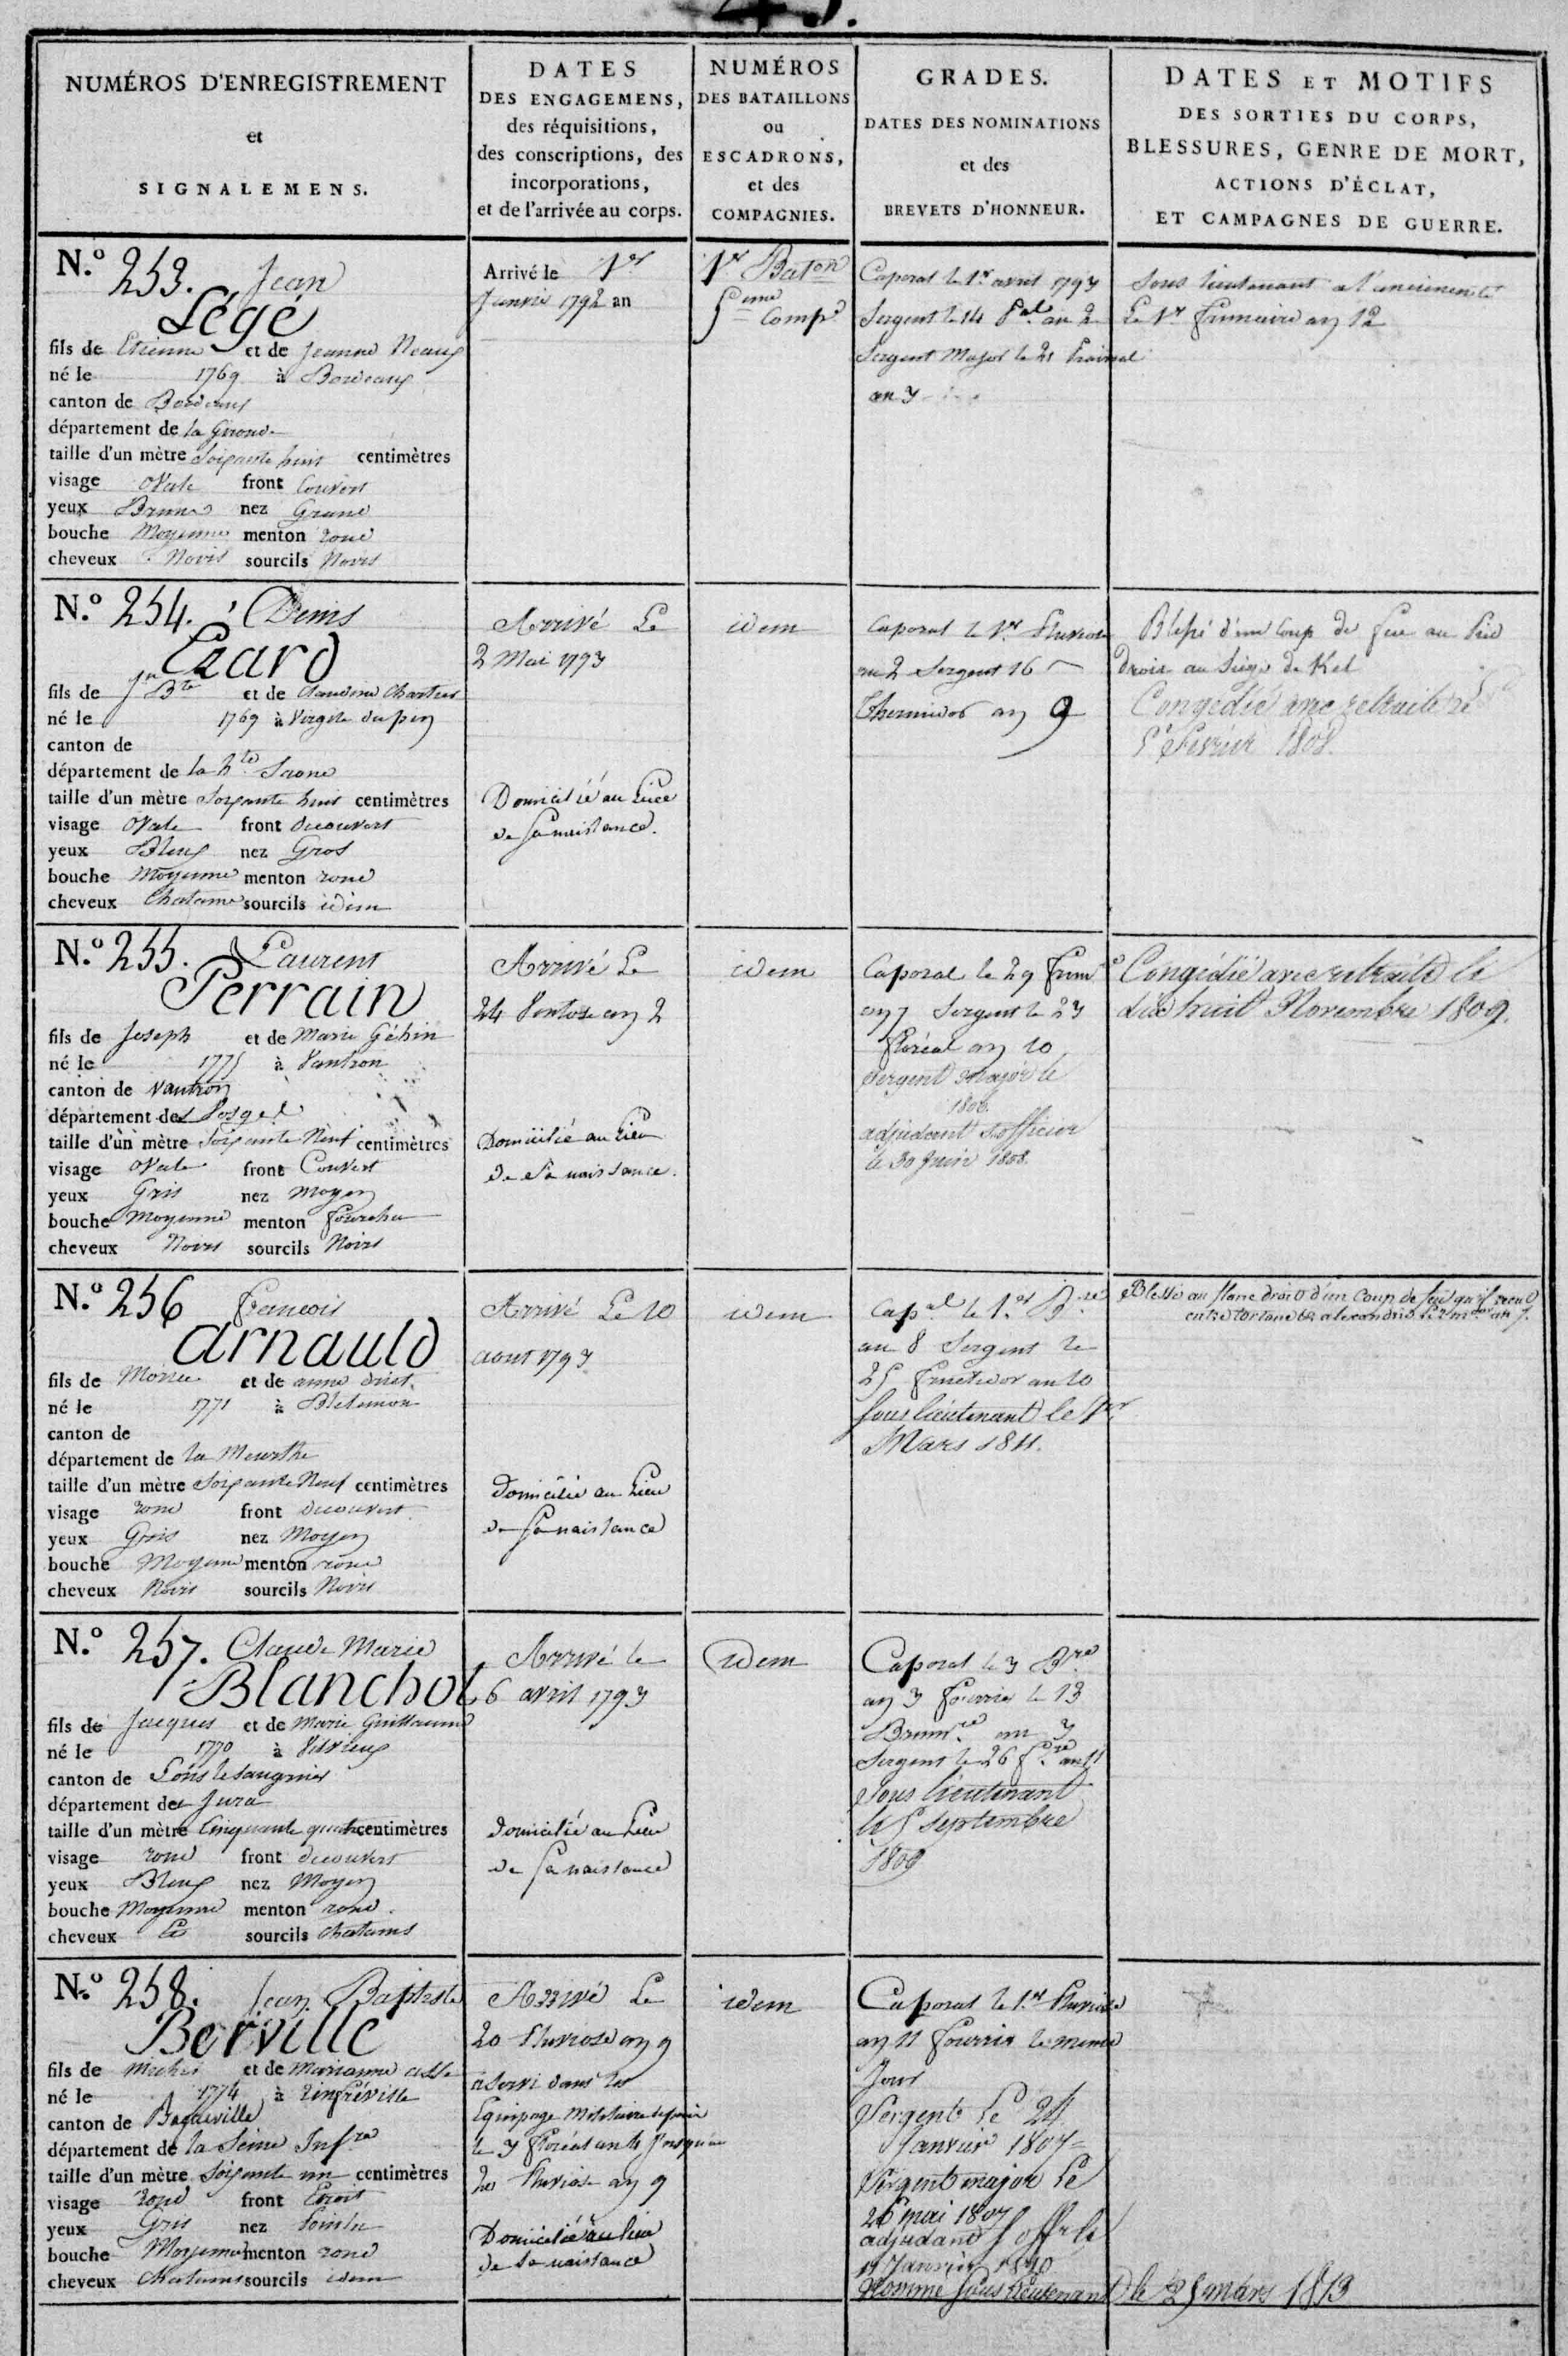 43.
NUMÉROS D'ENREGISTREMENT
et
SIGNALEMENS.
DATES
DES ENGAGEMENS,
des réquisitions,
des conscriptions, des
incorporations,
et de l'arrivée au corps.
NUMÉROS
DES BATAILLONS
ou
ESCADRONS,
et des
COMPAGNIES.
GRADES.
DATES DES NOMINATIONS
et des
BREVETS D'HONNEUR.
DATES ET MOTIFS
DES SORTIES DU CORPS,
BLESSURES, GENRE DE MORT,
ACTIONS D'ÉCLAT,
ET CAMPAGNES DE GUERRE.
N.º 253. Jean
Légé
fils de Etienne et de Jeanne Neaux
né le 1769 à Bordeaux
canton de Bordeaux
département de la Girond.
taille d'un mètre Soixante huit centimètres
visage Ovale front Couvert
yeux Bruns nez Grand
bouche Moyenne menton rond
cheveux Noirs sourcils Noirs
Arrivé le 1er
Janvier 1792 an
1er Baton
5eme Compe
Caporal le 1er avril 1793
Sergent le 14 an 2
Sergent Major le 21 Prairial
an 3
Sous lieutenant a l'ancienneté
Le 1er frimaire an 12
N.º 254. Denis
Ezard
fils de Jn Bte et de Claudine Chartier
né le 1769 à
canton de
département de la hte Saone
taille d'un mètre Soixante huit centimètres
visage Ovale front decouvert
yeux Bleux nez Gros
bouche Moyenne menton rond
cheveux Chatains sourcils idem
Arrivé Le
2 Mai 1793
Domicilié au Lieu
de Sa naissance.
idem
Caporal le 1er Pluviose
an 2 Sergent 16
Thermidor an 9
Blessé d'un Coup de feu au Pied
droit au Siège de Kel
Congédié avec retraite le
1er Fevrier 1808.
N.º 255. Laurent
Perrain
fils de Joseph et de Marie Géhin
né le 1775 à Vantron
canton de Vantron
département des Vosges
taille d'un mètre Soixante Neuf centimètres
visage Ovale front Couvert
yeux Gris nez moyen
bouche Moyenne menton fourchu
cheveux Noirs sourcils Noirs
Arrivé Le
24 Ventose an 2
Domicilié au Lieu
de Sa naissance.
idem
Caporal le 29 frimre
an 7 Sergent le 23
floréal an 10
Sergent Major le
1806
adjudant S officier
le 30 Juin 1808.
Congédié avec retraite le
dix huit Novembre 1809.
N.º 256 François
Arnauld
fils de et de anne
né le 1771 à Blétemon
canton de
département de la Meurthe
taille d'un mètre Soixante Neuf centimètres
visage rond front decouvert
yeux Gris nez Moyen
bouche Moyenne menton rond
cheveux Noirs sourcils Noirs
Arrivé Le 10
aout 1793
Domicilié au Lieu
de Sa naissance
idem
Capal le 1er Bre
an 8 Sergent le
25 fructidor an 10
Sous lieutenant le 1er
Mars 1811.
Blessé au flanc droit d'un Coup de feu qu'il recut
entre tortane et alexandrie an 7.
N.º 257. Claude Marie
Blanchot
fils de Jacques et de Marie Guillaume
né le 1770 à
canton de Lons le Saugnier
département de Jura
taille d'un mètre Cinquante quatre centimètres
visage rond front decouvert
yeux Bleux nez Moyen
bouche Moyenne menton rond.
cheveux Et sourcils Chatains
Arrivé le
6 avril 1793
Domicilié au Lieu
de Sa naissance
idem
Caporal le 3 Bre
an 3 fourrier le 13
Brumre an 7
Sergent le 26 fre an 11
Sous lieutenant
le 5 septembre
1809
N.º 258. Jean Baptiste
Berville
fils de et de Marianne
né le 1774 à
canton de Baqueville
département de la Seine Infre
taille d'un mètre Soixante un centimètres
visage rond front Etroit
yeux Gris nez Pointu
bouche Moyenne menton rond
cheveux Chatains sourcils idem
Arrivé Le
20 Pluviose an 9
a Servi dans les
Equipage Militaire depuis
le 3 floréal an 4 Jusqu'au
20 Pluviose an 9
Domicilié au lieu
de Sa naissance
idem
Caporal le 1er Pluviose
an 11 fourrier le meme
Jour
Sergent Le 24
Janvier 1807
Sergent major Le
26 mai 1807
adjudant S offr le
11 Janvier 1810
Nommé Sous Lieutenant le 25 mars 1813